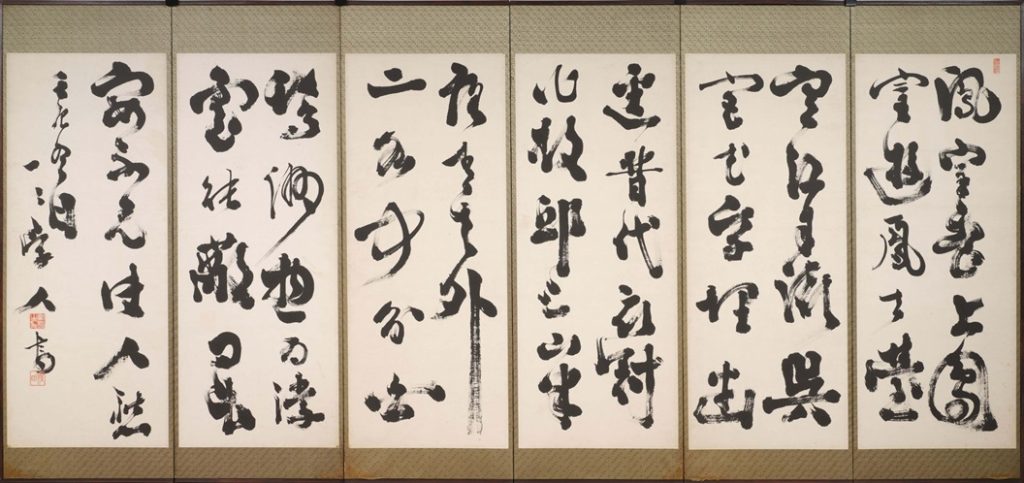 鳳凰臺上鳳
凰遊鳳去臺
空江自流吳
宮花草埋幽
逕晉代衣冠
成故邱三山半
落青天外
二水中分白
鷺洲總為浮
雲能蔽日長
安不見使人愁
日
學人書